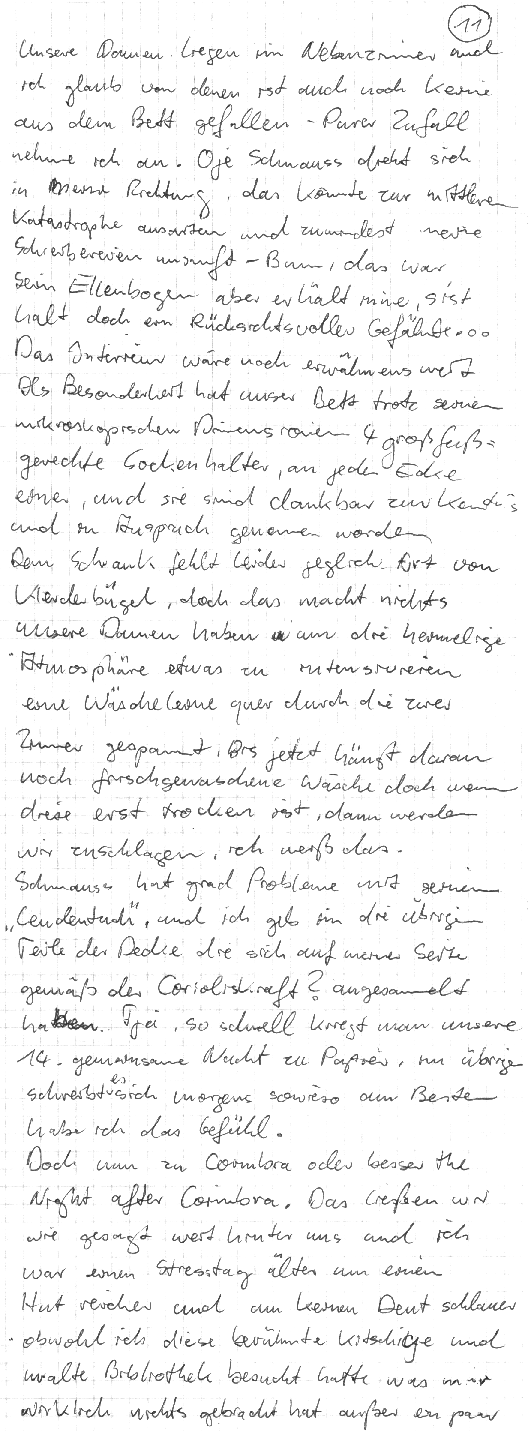 11
Unsere Damen liegen im Nebenzimmer und
ich glaub von denen ist auch noch keine
aus dem Bett gefallen - Purer Zufall
nehme ich an. Oje Schmauss dreht sich
in meine Richtung, das könnte zur mittleren
Katastrophe ausarten und zumindest meine
Schreibereien unsanft - Bum, das war
sein Ellenbogen aber er hält inne, s'ist
halt doch ein Rücksichtsvoller Gefährte...
Das Interrieur wäre noch erwähnenswert
Als Besonderheit hat unser Bett trotz seinen
mikroskopischen Dimensionen 4 großfuß=
gerechte Sockenhalter, an jeder Ecke
einer, und sie sind dankbar zur Kentnis
und in Anspruch genommen worden
Dem Schrank fehlt leider jegliche Art von
Kleiderbügel, doch das macht nichts
unsere Damen haben um die heimelige
Atmosphäre etwas zu intensivieren
eine Wäscheleine quer durch die zwei
Zimmer gespannt. Bis jetzt hängt daran
noch frischgewaschene Wäsche doch wenn
diese erst trocken ist, dann werden
wir zuschlagen, ich weiß das.
Schmauss hat grad Probleme mit seinem
„Lendentuch", und ich geb im die übrigen
Teile der Decke die sich auf meiner Seite
gemäß der Corioliskraft? angesammelt
hatten. Tja, so schnell kriegt man unsere
14. gemeinsame Nacht zu Papier, im übrigen
schreibt es sich morgens sowieso am Besten
habe ich das Gefühl.
Doch nun zu Coimbra oder besser the
Night after Coimbra. Das ließen wir
wie gesagt weit hinter uns und ich
war einen Stresstag älter um einen
Hut reicher und um keinen Deut schlauer
obwohl ich diese berühmte kitschige und
uralte Bibliothek besucht hatte was mir
wirklich nichts gebracht hat außer ein paar